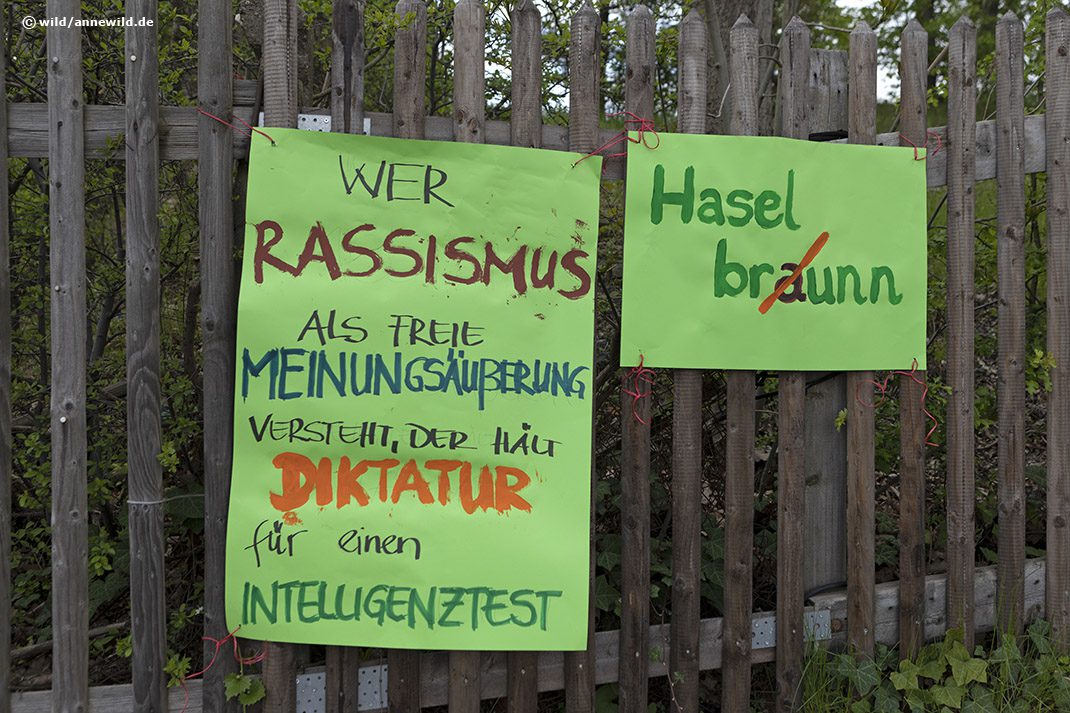 © wild/annewild.de
WER
RASSISMUS
ALS FREIE
MEINUNGSÄUßERUNG
VERSTEHT, DER HÄLT
DIKTATUR
für einen
INTELLIGENZTEST
Hasel
braunn